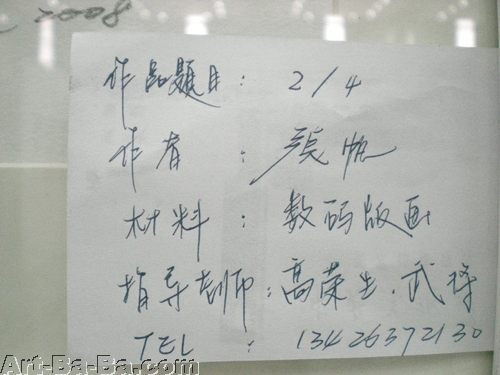 2008
作品题目: 2/4
作者:
材料: 数码版画
指导老师: 高荣生.武
TEL: 13426372130
Art-Ba-Ba.com